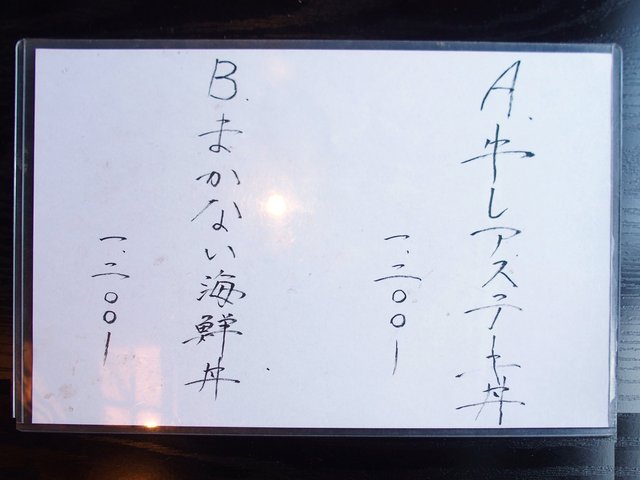 A.牛レアステーキ丼
一、二〇〇ー
B.まかない海鮮丼
一、二〇〇ー